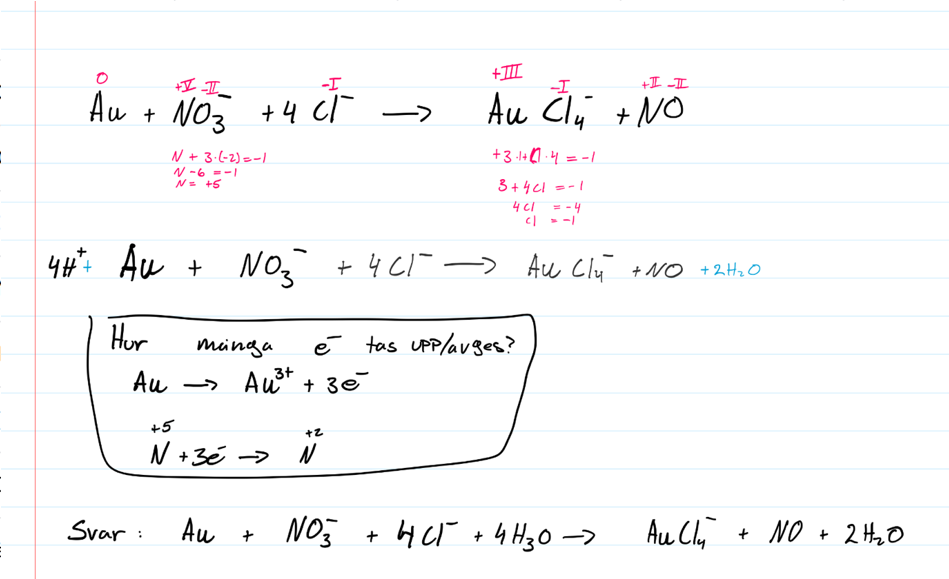 0 +V -II -I +III -I +II -II
Au + NO₃⁻ + 4 Cl⁻ → AuCl₄⁻ + NO
N + 3·(-2) = -1
N - 6 = -1
N = +5
+3·1+Cl·4 = -1
3 + 4Cl = -1
4Cl = -4
Cl = -1
4H⁺ + Au + NO₃⁻ + 4Cl⁻ → AuCl₄⁻ + NO + 2H₂O
Hur många e⁻ tas upp/avges?
Au → Au³⁺ + 3e⁻
+5 +2
N + 3e⁻ → N
Svar: Au + NO₃⁻ + 4Cl⁻ + 4H₃O → AuCl₄⁻ + NO + 2H₂O